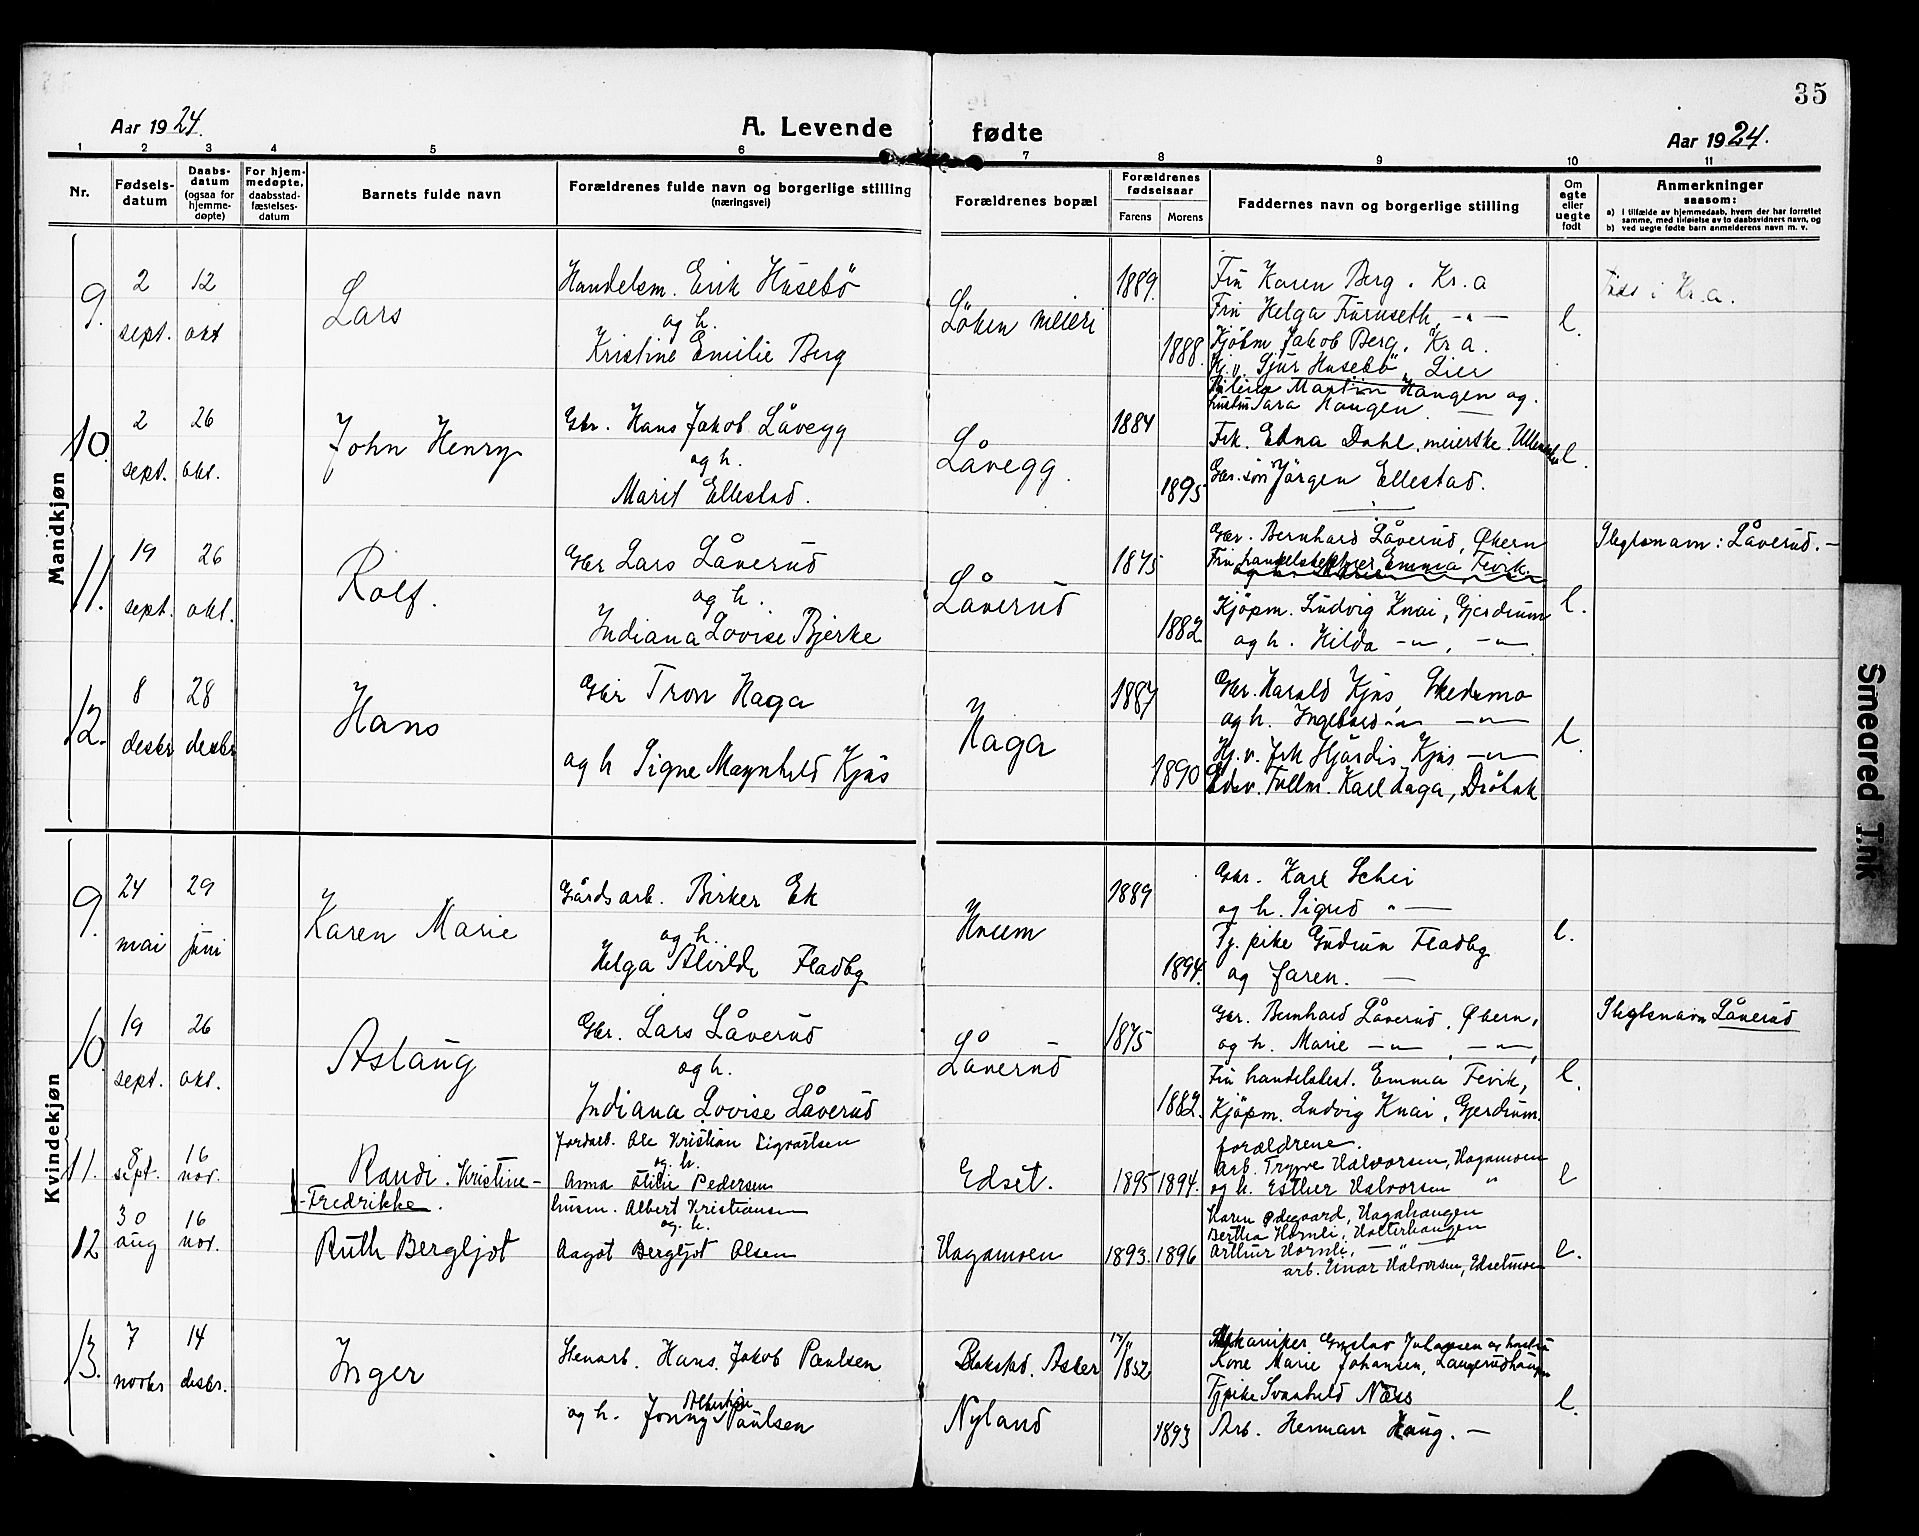 35
Aar 1924.
A. Levende fødte
Aar 1924.
1 2 3 4 5 6 7 8 9 10 11
Nr.
Fødsels-
datum
Daabs-
datum
(ogsaa for
hjemme-
døpte)
For hjem-
medøpte,
daabsstad-
fæstelses-
datum
Barnets fulde navn
Forældrenes fulde navn og borgerlige stilling
(næringsvei)
Forældrenes bopæl
Forældrenes
fødselsaar
Farens
Morens
Faddernes navn og borgerlige stilling
Om
egte
eller
uegte
født
Anmerkninger
saasom:
a) i tilfælde av hjemmedaab, hvem der har forrettet
samme, med tilføielse av to daabsvidners navn, og
b) ved uegte fødte barn anmelderens navn m. v.
Mandkjøn
9.
2
sept.
12
okt
Lars
Handelsm. Erik Husebö
og h.
Kristine Emilie Berg
Löken meieri
1889.
1888.
Fru Karen Berg. Kr.a
Fru Helga Furuseth -"-
Kjöbm Jakob Berg. Kr a.
Sjur Husebö, Lier
Martin Haugen og
hustru Sara Haugen
e.
Født i Kr.a.
10.
2
sept.
26
okt.
John Henry
Gbr. Hans Jakob Låvegg
og h.
Marit Ellestad.
Låvegg.
1884
1895
Frk. Edna Dahl, meierske.
Gbr. søn Jörgen Ellestad.
e.
11.
19
sept.
26
okt.
Rolf.
Gbr Lars Låverud
og h.
Indiana Lovise Bjerke
Låverud
1875
1882
Gbr. Bernhard Låverud, Øbern
Fru Emma Fevik.
Kjöpm. Ludvig Knai, Gjerdrum
og h. Hilda -"-, -"-
e.
Slegtsnavn: Låverud. -
12.
8
desbr
28
desbr
Hans
Gbr Tron Haga
og h Signe Magnhild Kjus
Haga
1887
1890
Gbr. Harald Kjus, Skedsmo
og h. Ingeborg -"- -"-
Hj. v. frk Hjördis Kjus -"-
Tollm. Karl Haga, Dröbak
e.
Kvindekjøn
9.
24
mai
29
juni
Karen Marie
Gårdsarb. Birker Ek
og h.
Helga Alvilde Fladby
Hneum
1889
1894.
Gbr. Karl Schei
og h. Sigrid " —
Tj. pike Gudrun Fladby
og faren. —
e.
10.
19
sept.
26
okt.
Aslaug
Gbr. Lars Låverud
og h.
Indiana Lovise Låverud
Låverud
1875
1882.
Gbr. Bernhard Låverud, Øbern,
og h. Marie -"-, -"-,
Fru handelsbest. Emma Fevik,
Kjöpm. Ludvig Knai, Gjerdrum.
forældrene.
e.
Slegtsnavn Låverud
11.
8
sept.
16
nov.
Randi. Kristine-
-Fredrikke.
Jordarb. Ole Kristian Sigvartsen
og. h.
Anna Otilie Pedersen
Edset.
1895
1894.
arb. Trygve Halvorsen, Hagamoen
og h. Esther Halvorsen "
e
12
30
aug
16
nov.
Ruth Bergljot
husm. Albert Kristiansen
og. h.
Aagot Bergljot Olsen
Hagamoen
1893.
1896
Karen Ødegaard, Hagahaugen
Bertha Hornli, Holterhaugen
Arthur Hornli, — " —
arb. Einar Halvorsen, Edsetmoen
e.
13.
7
novbr
14
desbr.
Inger
Stenarb. Hans Jakob Paulsen
og h. Jonny Albertine Paulsen
Blakstad. Asker
Nyland
1852
1893
Mekaniker Gustav Julansen og hustru
Kone Marie Johansen, Langerudhaugen
Tj pike Svanhild Næss
Arb. Herman Haug. —
e.
Smeared Ink